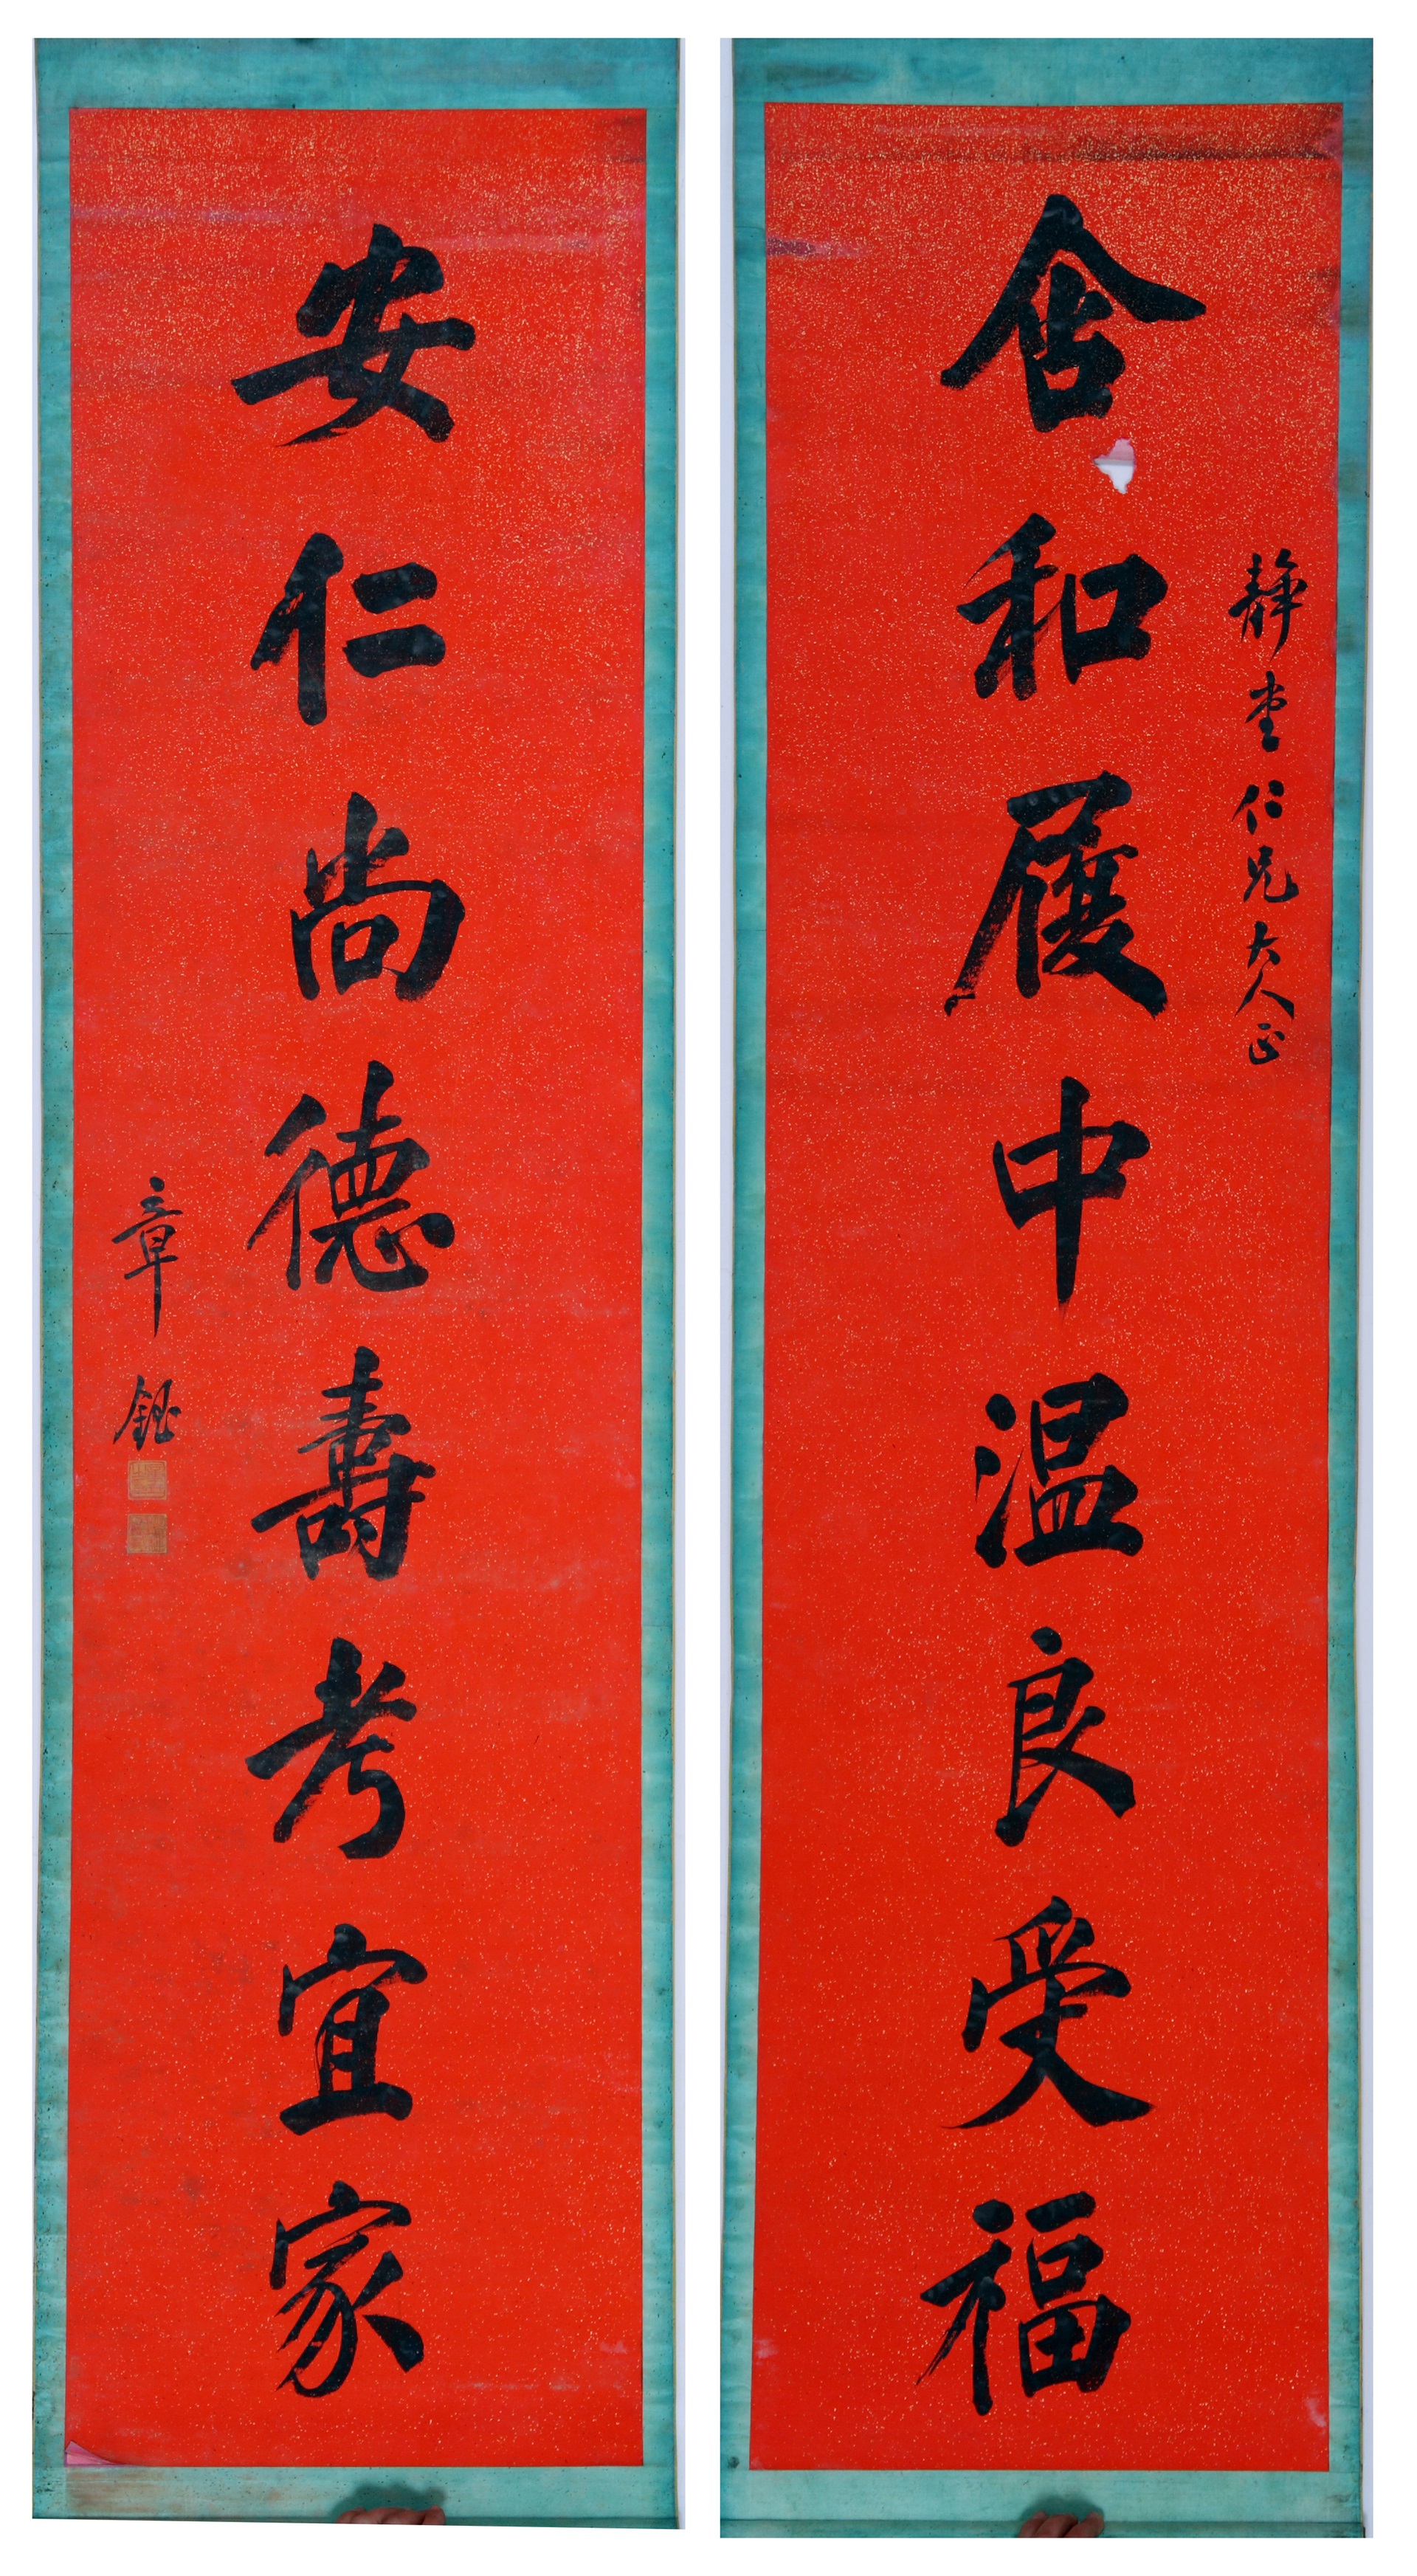 靜堂仁兄大人正
含和履中温良受福
安仁尚德壽考宜家
章鈺